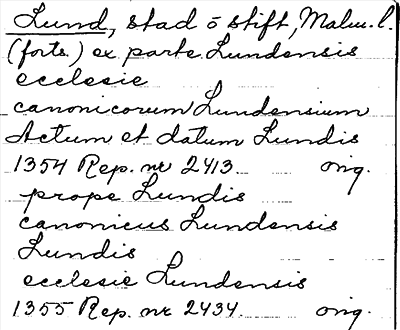 Lund, stad o stift, Malm. l.
(forts.) ex parte Lundensis
ecclesie
canonicorum Lundensium
Actum et datum Lundis
1354 Rep. nr 2413. orig.
prope Lundis
canonicus Lundensis
Lundis
ecclesie Lundensis
1355 Rep. nr 2434. orig.